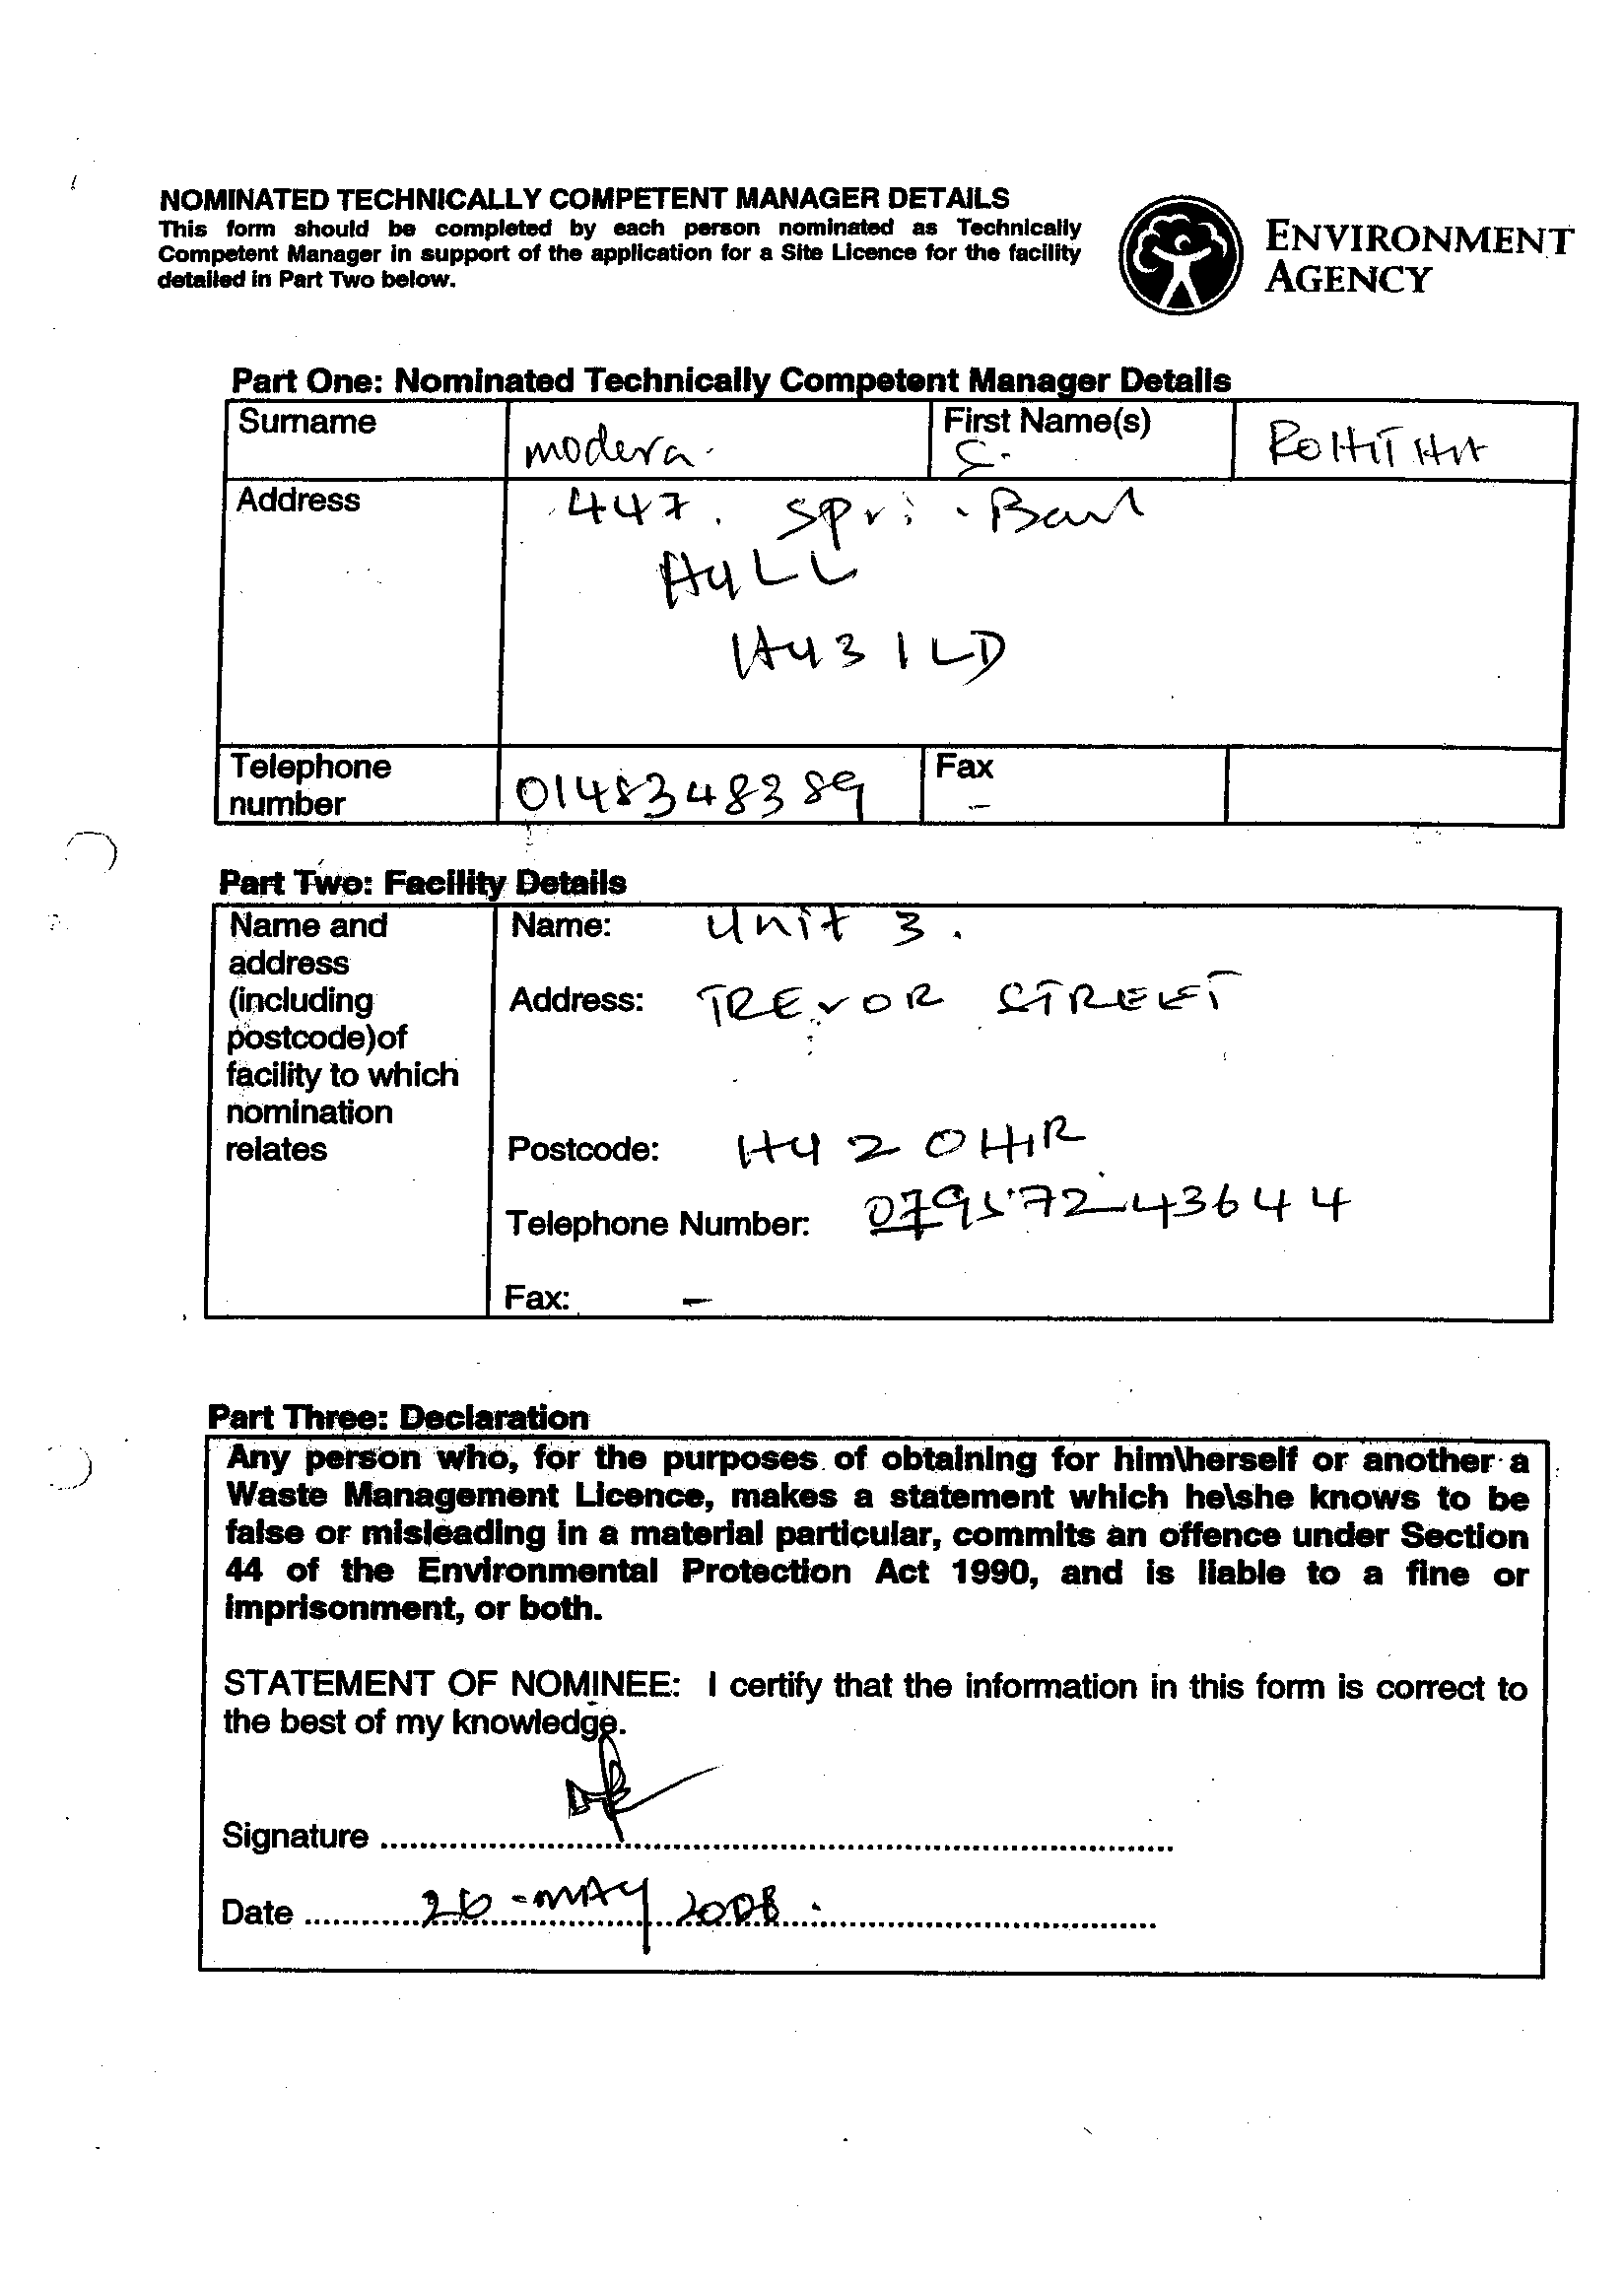 NOMINATED TECHNICALLY COMPETENT MANAGER DETAILS
This form should be completed by each person nominated as Technically
Competent Manager in support of the application for a Site Licence for the facility
detailed in Part Two below.
ENVIRONMENT
AGENCY
Part One: Nominated Technically Competent Manager Details
Surname modera. First Name(s) C. ROHITHA
Address 447. Spri
HULL
HU3 1LD
Telephone
number 01483483 89 Fax -
Part Two: Facility Details
Name and
address
(including
postcode)of
facility to which
nomination
relates
Name: Unit 3.
Address: TREVOR STREET
Postcode: HU2 0HR
Telephone Number: 07957243644
Fax: -
Part Three: Declaration
Any person who, for the purposes of obtaining for him\herself or another a
Waste Management Licence, makes a statement which he\she knows to be
false or misleading in a material particular, commits an offence under Section
44 of the Environmental Protection Act 1990, and is liable to a fine or
imprisonment, or both.
STATEMENT OF NOMINEE: I certify that the information in this form is correct to
the best of my knowledge.
Signature
Date 26 - MAY 2008.